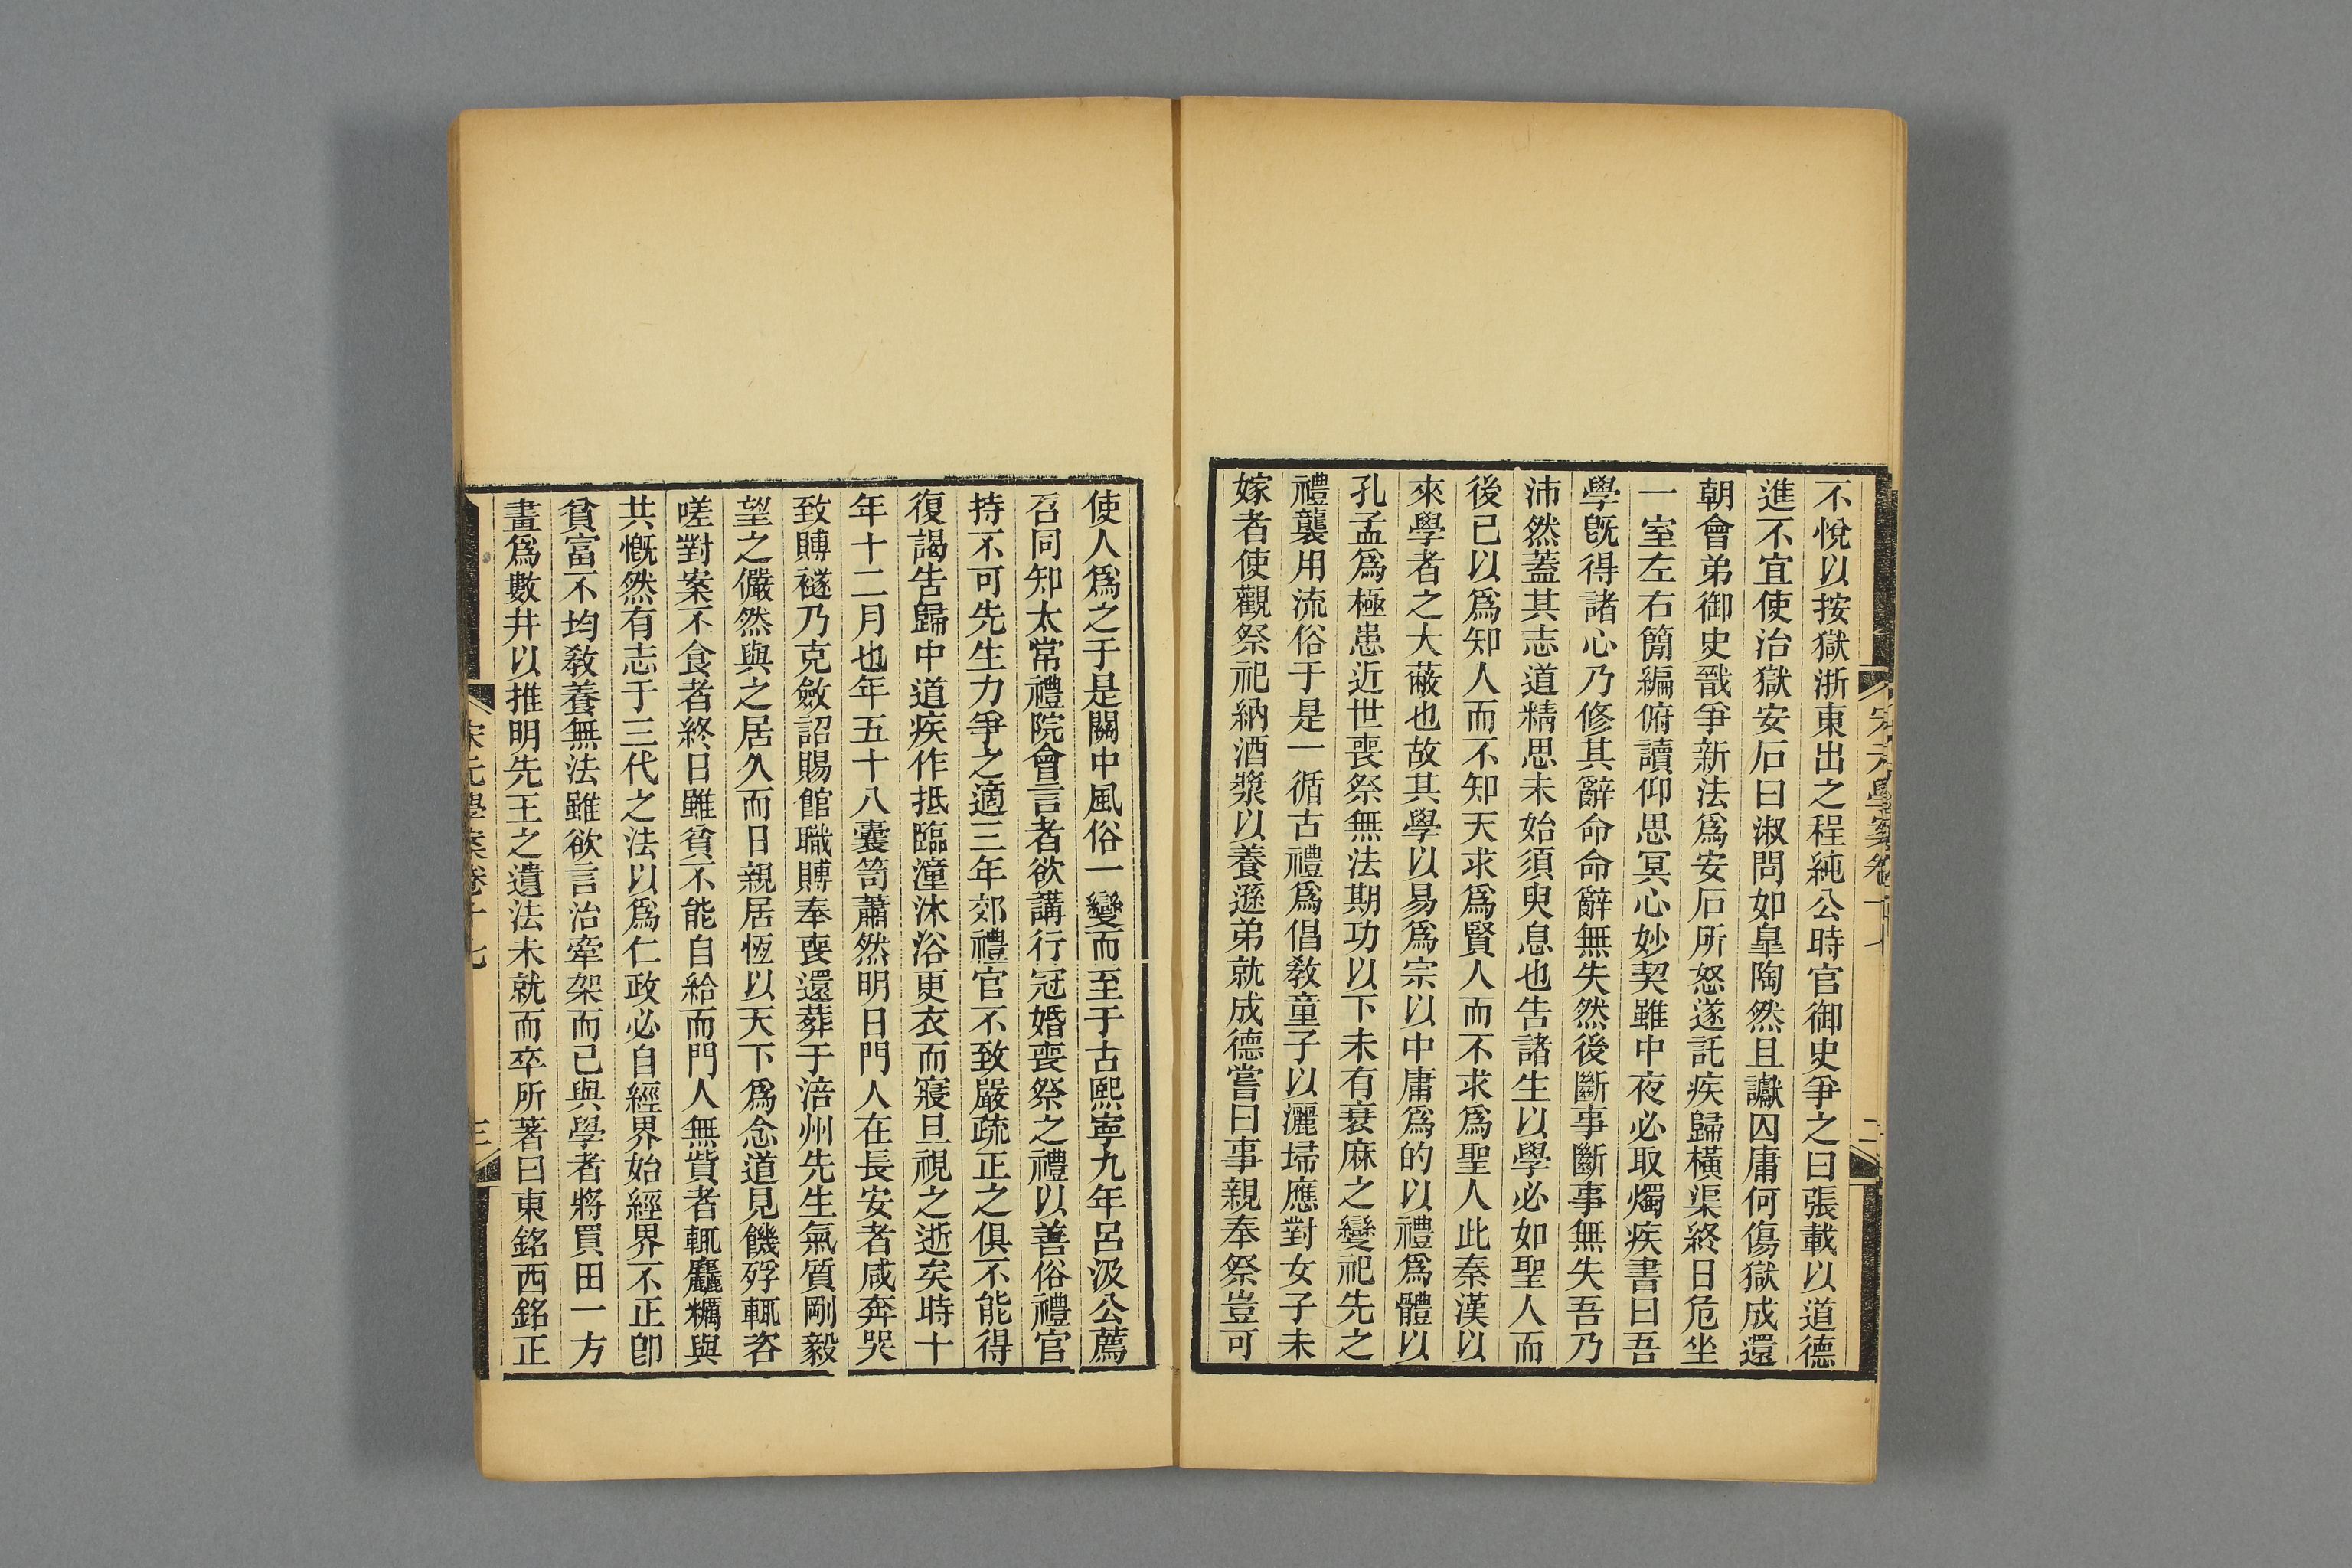 不悅以按獄浙東出之程純公時官御史爭之曰張載以道德
進不宜使治獄安石曰淑問如皐陶然且讞囚庸何傷獄成還
朝會弟御史戩爭新法爲安石所怒遂託疾歸橫渠終日危坐
一室左右簡編俯讀仰思冥心妙契雖中夜必取燭疾書曰吾
學旣得諸心乃修其辭命命辭無失然後斷事斷事無失吾乃
沛然蓋其志道精思未始須臾息也告諸生以學必如聖人而
後已以爲知人而不知天求爲賢人而不求爲聖人此秦漢以
來學者之大蔽也故其學以易爲宗以中庸爲的以禮爲體以
孔孟爲極患近世喪祭無法期功以下未有衰麻之變祀先之
禮襲用流俗于是一循古禮爲倡敎童子以灑埽應對女子未
嫁者使觀祭祀納酒漿以養遜弟就成德嘗曰事親奉祭豈可
使人爲之于是關中風俗一變而至于古熙寧九年呂汲公薦
召同知太常禮院會言者欲講行冠婚喪祭之禮以善俗禮官
持不可先生力爭之適三年郊禮官不致嚴疏正之俱不能得
復謁告歸中道疾作抵臨潼沐浴更衣而寢旦視之逝矣時十
年十二月也年五十八囊笥蕭然明日門人在長安者咸奔哭
致賻襚乃克斂詔賜館職賻奉喪還葬于涪州先生氣質剛毅
望之儼然與之居久而日親居恆以天下爲念道見饑殍輒咨
嗟對案不食者終日雖貧不能自給而門人無貲者輒麤糲與
共慨然有志于三代之法以爲仁政必自經界始經界不正卽
貧富不均敎養無法雖欲言治牽架而已與學者將買田一方
畫爲數井以推明先王之遺法未就而卒所著曰東銘西銘正
宋元學案卷十七
三